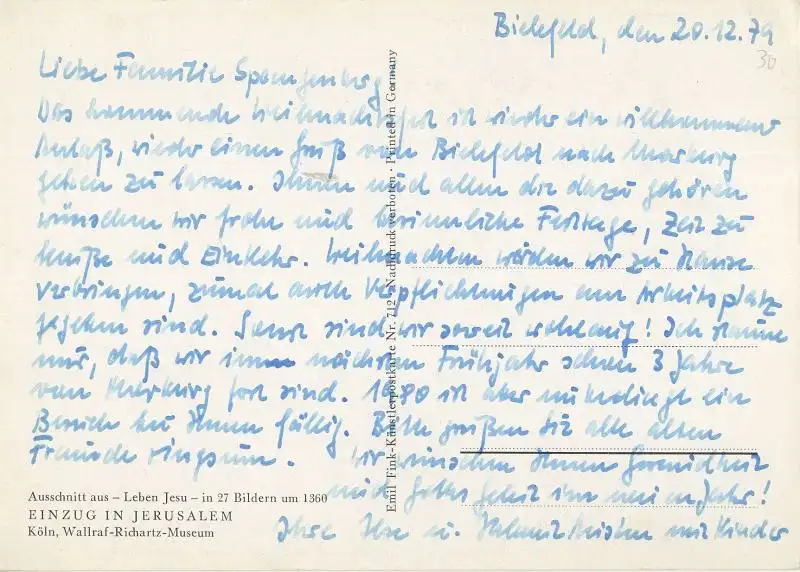 Bielefeld, den 20.12.79
30
Liebe Familie Spangenberg,
Das kommende Weihnachtsfest ist wieder ein willkommener
Anlaß, wieder einen Gruß von Bielefeld nach Marburg
gehen zu lassen. Ihnen und allen die dazu gehören
wünschen wir frohe und besinnliche Festtage, Zeit zu
Muße und Einkehr. Weihnachten werden wir zu Hause
verbringen, zumal auch Verpflichtungen am Arbeitsplatz
gegeben sind. Sonst sind wir soweit wohlauf! Ich staune
nur, daß wir im nächsten Frühjahr schon 3 Jahre
von Marburg fort sind. 1980 ist aber unbedingt ein
Besuch bei Ihnen fällig. Bitte grüßen Sie alle alten
Freunde ringsum. Wir wünschen Ihnen Gesundheit
und Gottes Geist im neuen Jahr!
Ihre Ilse u. Helmut mit Kinder
Emil Fink-Künstlerpostkarte Nr. 712 · Nachdruck verboten · Printed in Germany
Ausschnitt aus – Leben Jesu – in 27 Bildern um 1360
EINZUG IN JERUSALEM
Köln, Wallraf-Richartz-Museum